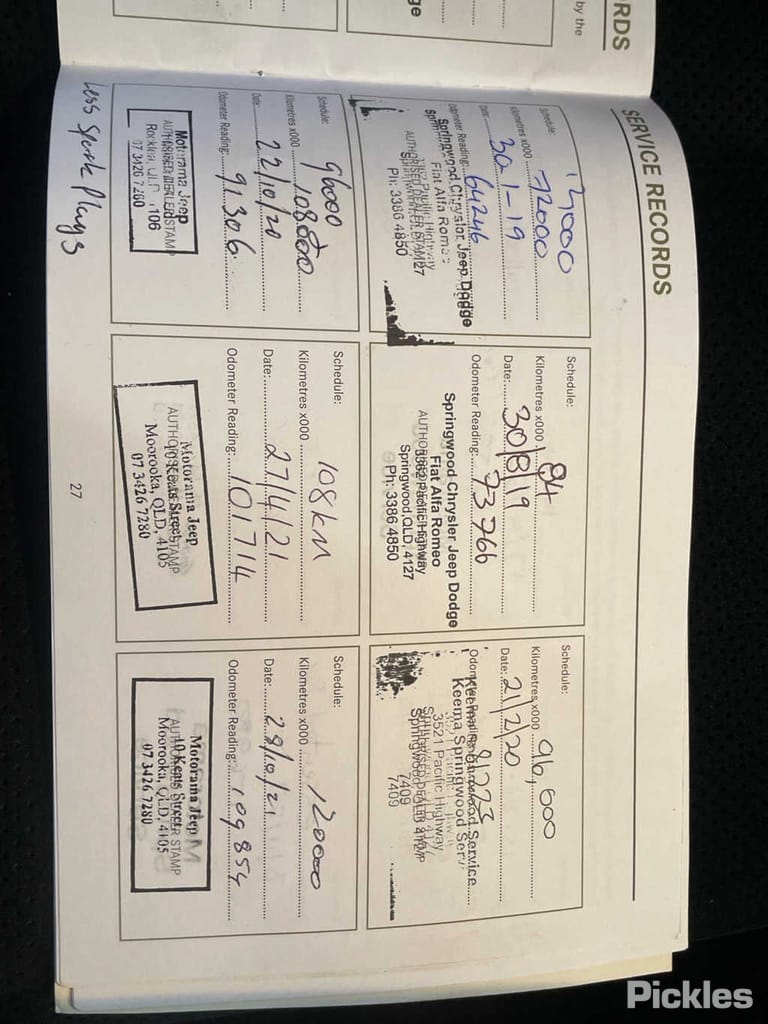 RDS
by the
ge
SERVICE RECORDS
Schedule:
Kilometres x000 72000
Date: 30-1-19
Odometer Reading: 64246
Springwood Chrysler Jeep Dodge
Fiat Alfa Romeo
AUTHORISED DEALER STAMP
Ph: 3386 4850
Schedule:
Kilometres x000 84
Date: 30/8/19
Odometer Reading: 73766
Springwood Chrysler Jeep Dodge
Fiat Alfa Romeo
3362 Pacific Highway
Springwood, QLD, 4127
Ph: 3386 4850
Schedule:
Kilometres x000 96,000
Date: 21/2/20
Odometer Reading: 81773
Keema Springwood Service
3521 Pacific Highway
AUTHORISED DEALER STAMP
7409
Schedule: 96000
Kilometres x000 108000
Date: 22/10/20
Odometer Reading: 91306
Motorama Jeep
AUTHORISED DEALER STAMP
Rocklea, QLD 4106
07 3426 7280
Less Spark Plugs
Schedule:
Kilometres x000 108KM
Date: 27/4/21
Odometer Reading: 101714
Motorama Jeep
AUTHORISED DEALER STAMP
10 Keats Street
Moorooka, QLD, 4105
07 3426 7280
Schedule:
Kilometres x000 120000
Date: 28/10/21
Odometer Reading: 109854
Motorama Jeep
AUTHORISED DEALER STAMP
10 Keats Street
Moorooka, QLD, 4105
07 3426 7280
27
Pickles